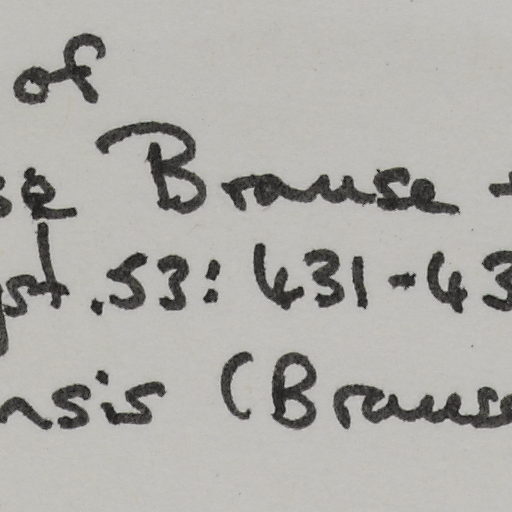 of
se Brause -
yst. 53: 431-43
nsis (Brause